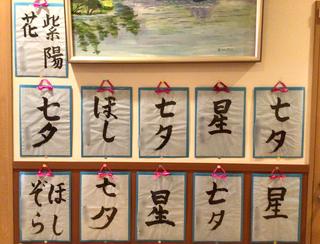 紫陽
花
七夕
ほし
七夕
星
七夕
ほし
ぞら
七夕
星
七夕
星